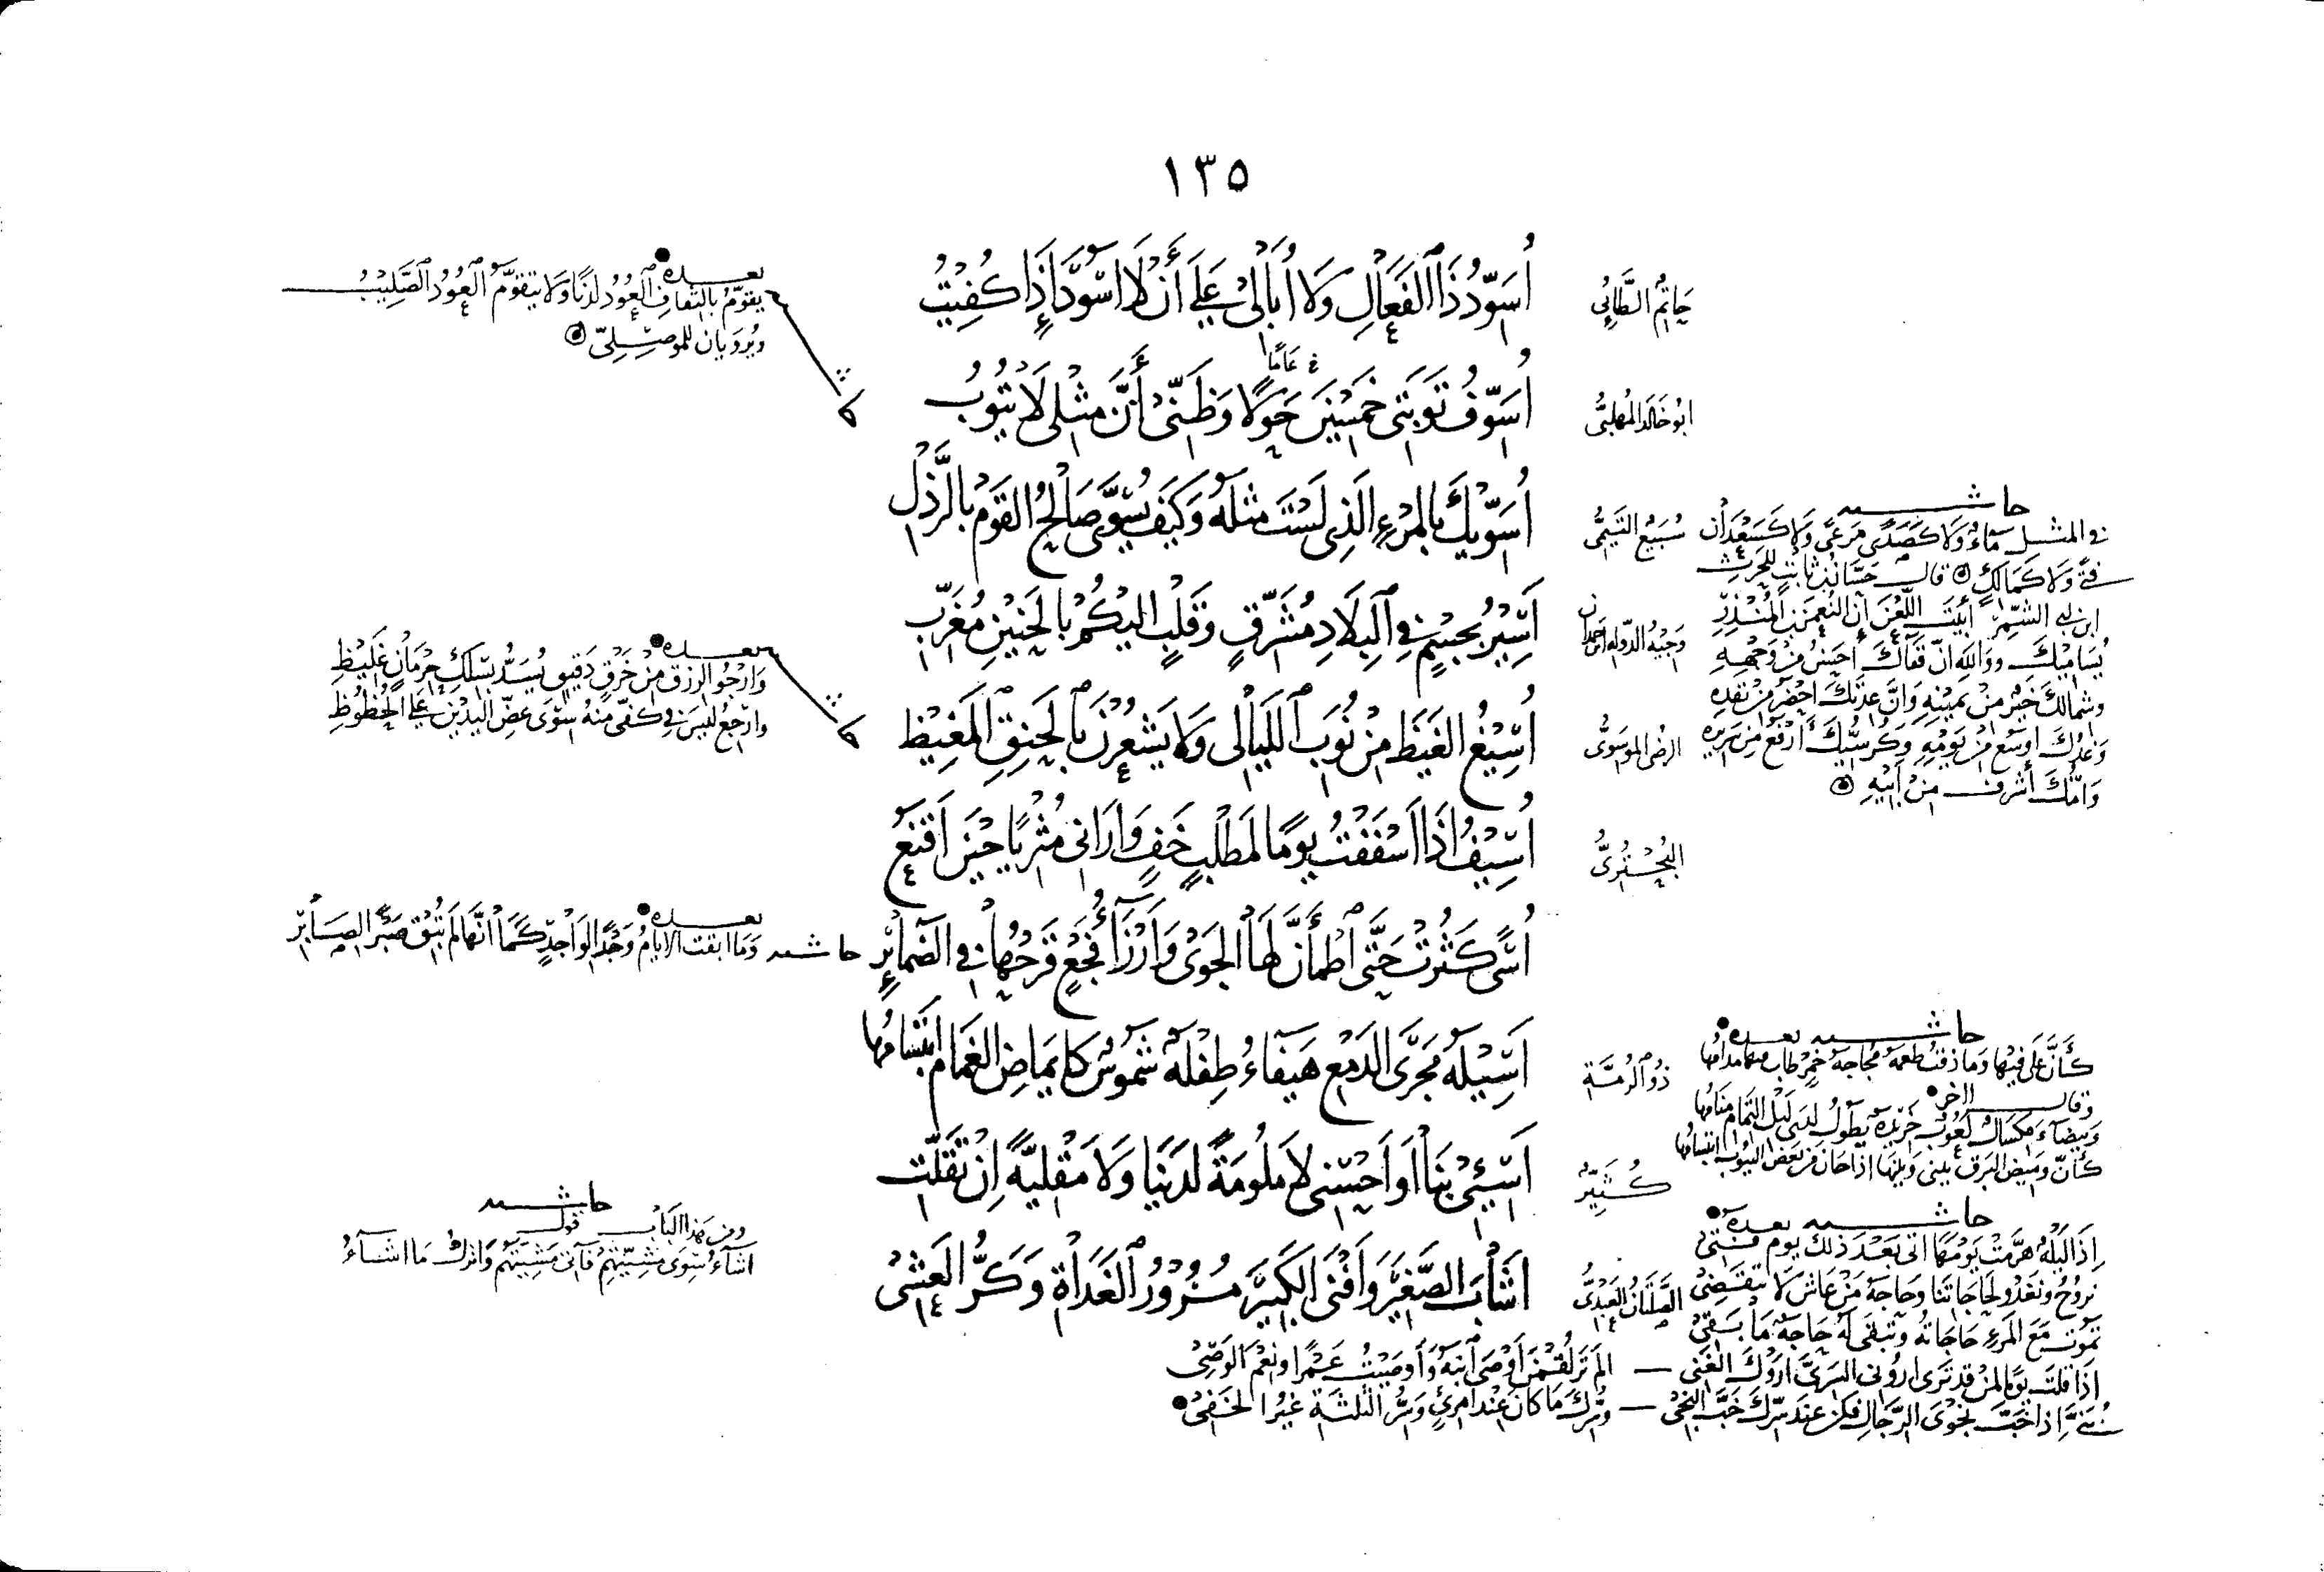 ١٣٥
حَاتِمُ الطَّائِيُّ
أُسَوِّدُ ذَا الْفَعَالِ وَلَا أُبَالِيْ عَلَى أَنْ لَا أُسَوَّدَ إِذَا كُفِيْتُ
خ عَامًا
ابُو خَالِد المُهَلَّبِيُّ
أُسَوِّفُ تَوْبَتِي خَمْسِيْنَ حَوْلًا وَظَنِّيْ أَنَّ مِثْلِي لَا يَتُوْبُ
بعده
يُقَوَّمُ بِالثِّقَافِ الْعُوْدُ لَدْنًا وَلَا يَتَقَوَّمُ الْعُوْدُ الصَّلِيْبُ
ويُرْوَيَانِ للموصِلِيّ
سُبَيْعُ التَّيْمِيُّ
أُسَوِّيْكَ بِالمَرْءِ الَّذِي لَسْتَ مِثْلَهُ وَكَيْفَ يُسَوَّى صَالِحُ القَوْمِ بِالرَّذْلِ
حاشية
في المثل مَاءٌ وَلَا كَصَدَّى مَرْعًى وَلَا كَالسَّعْدَانِ
فَتًى وَلَا كَمَالِكٍ قال حَسَّانُ بنُ ثَابِتٍ للحٰرِثِ
ابنِ أبي الشِّمْرِ أَبَيْتَ اللَّعْنَ إنَّ النُّعْمٰنَ بنَ المُنْذِرِ
يُسَامِيْكَ وَوَاللهِ إنَّ قَفَاكَ أَحْسَنُ مِنْ وَجْهِهِ
وشِمَالكَ خَيْرٌ مِنْ يَمِيْنِهِ وَإنَّ عِدَتَكَ أَحْضَرُ مِنْ نَقْدِهِ
وَغَدُكَ أوْسَعُ مِنْ يَوْمِهِ وَكُرْسِيُّكَ أَرْفَعُ مِنْ سَرِيْرِهِ
وَأمُّكَ أَشْرَفُ مِنْ أَبِيْهِ
وَجِيْهُ الدَّوْلَهِ ابن حمدان
أَسِيْرُ بِجِسْمٍ فِي الْبِلَادِ مُشَرِّقٍ وَقَلْبٍ إِلَيْكُمْ بِالْحَنِيْنِ مُغَرِّبِ
الرضى الموسَوِيُّ
أُسِيْغُ الغَيْظَ مِنْ نُوَبِ اللَّيَالِي وَلَا يَشْعُرْنَ بِالْحَنِقِ الْمَغِيْظِ
بعده
وَأرْجُو الرِّزْقَ مِنْ خَرْقٍ دَقِيْقٍ يُسَدُّ بِسِلْكِ حِرْمَانٍ غَلِيْظِ
وأرْجِعُ لَيْسَ في كَفِّي مِنْهُ سِوَى عَضِّ اليَدَيْنِ عَلَى الْحُظُوْظِ
البُحْتُرِيُّ
أُسِيْفُ إِذَا أَسْفَفْتُ يَوْمًا لِمَطْلَبٍ خَفٍ وَأَرَانِي مُثْرِيًا حِيْنَ أَقْنَعُ
أُسًى كَثُرَتْ حَتَّى اطْمَأَنَّ لَهَا الْجَوَى وَأَرْزَاءُ فَجْعٍ قَرْحُهَا فِي الضَّمَائِرِ
حاشية بعده
وَمَا أبْقَتِ الأيَّامُ وَجْدًا لِوَاجِدٍ كَمَا أَنَّهَا لَمْ تُبْقِ صَبْرًا لِصَابِرِ
ذُو الرُّمَّةِ
أَسِيْلَةُ مَجْرَى الدَّمْعِ هَيْفَاءُ طِفْلَةٌ شَمُوْسٌ كَإِيْمَاضِ الغَمَامِ ابْتِسَامُهَا
حاشية بعده
كَأَنَّ عَلَى فِيْهَا وَمَا ذُقْتُ طَعْمَهُ مُجَاجَةَ خَمْرٍ طَابَ مِنهَا مُدَامُهَا
وقال الآخر
وَبَيْضَاءَ مِكْسَالٍ لَعُوْبٍ خَرِيْدَةٍ يَطُوْلُ لَدَى لَيْلِ التَّمَامِ مَنَامُهَا
كَأنَّ وَمِيْضَ البَرْقِ بَيْنِي وَبَيْنَهَا إذَا حَانَ مِنْ بَعْضِ البُيُوْتِ ابْتِسَامُهَا
كُثَيِّرُ
أَسِيْئِيْ بِنَا أَوْ أَحْسِنِي لَا مَلُوْمَةً لَدَيْنَا وَلَا مَقْلِيَّةً إِنْ تَقَلَّتِ
الصَّلَتَانُ العَبْدِيُّ
أَشَابَ الصَّغِيْرَ وَأَفْنَى الْكَبِيْرَ مُرُوْرُ الْغَدَاةِ وَكَرُّ الْعَشِيْ
حاشية
ومن هذا البَاب قول
أشَاءُ سِوَى مَشِيْئَتِهِمْ فَآتِي مَشِيْئَتَهُمْ وَأتْرُكُ مَا أشَاءُ
حاشية بعده
إذَا لَيْلَةٌ هَرَّمَتْ يَوْمَهَا أتَى بَعْدَ ذلِكَ يَوْمٌ فَتِيْ
نَرُوْحُ وَنَغْدُو لِحَاجَاتِنَا وَحَاجَةُ مَنْ عَاشَ لَا تَنْقَضِيْ
تَمُوْتُ مَعَ الْمَرْءِ حَاجَاتُهُ وَتَبْقَى لَهُ حَاجَةٌ مَا بَقِيْ
إذَا قُلْتَ يَوْمًا لِمَنْ قَدْ تَرَى أرُوْنِي السَّرِيَّ أرَوْكَ الْغَنِي — أَلَمْ تَرَ لُقْمٰنَ أَوْصَى ابْنَهُ وَأَوْصَيْتُ عَمْرًا وَنِعْمَ الْوَصِيْ
بُنَيَّ إذَا خَبَّ نَجْوَى الرِّجَالِ فَكُنْ عِنْدَ سِرِّكَ خَبَّ النَّجِيْ — وَسِرُّكَ مَا كَانَ عِنْدَ امْرِئٍ وَسِرُّ الثَّلٰثَةِ غَيْرُ الْخَفِيْ